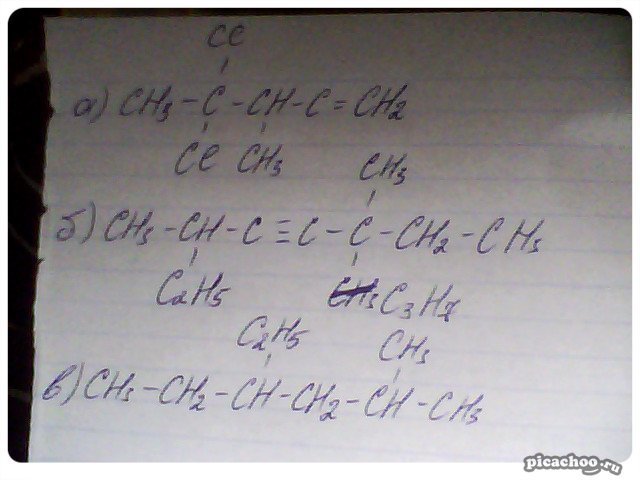 Cl
а) CH3 - C - CH - C = CH2
Cl CH3
CH3
б) CH3 - CH - C ≡ C - C - CH2 - CH3
C2H5 C3H7
C2H5 CH3
в) CH3 - CH2 - CH - CH2 - CH - CH3
picachoo.ru